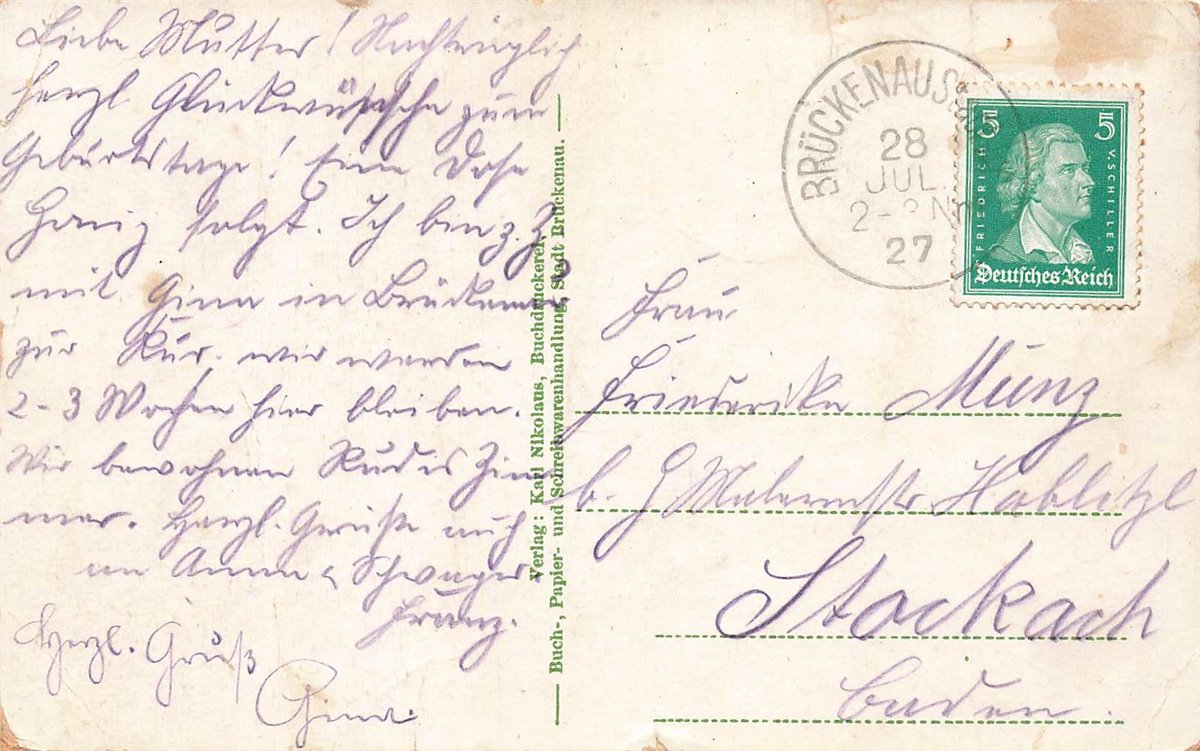 Liebe Mutter! Nachträglich
herzl. Glückwünsche zum
Geburtstage! Eine Dose
Honig folgt. Ich bin z. Z.
mit Gina in Brückenau
zur Kur. wir werden
2-3 Wochen hier bleiben.
Wir bewohnen Rudis Zim
mer. Herzl. Grüße auch
an Anna & Schwager
Franz.
Herzl. Gruß
Gina.
Verlag: Karl Nikolaus, Buchdruckerei,
Buch-, Papier- und Schreibwarenhandlung, Stadt Brückenau.
BRÜCKENAU
28
JUL.
27
5 5
FRIEDRICH V. SCHILLER
Deutsches Reich
Frau
Friederike Munz
b. H Malermstr Hablitzl
Stockach
Baden.